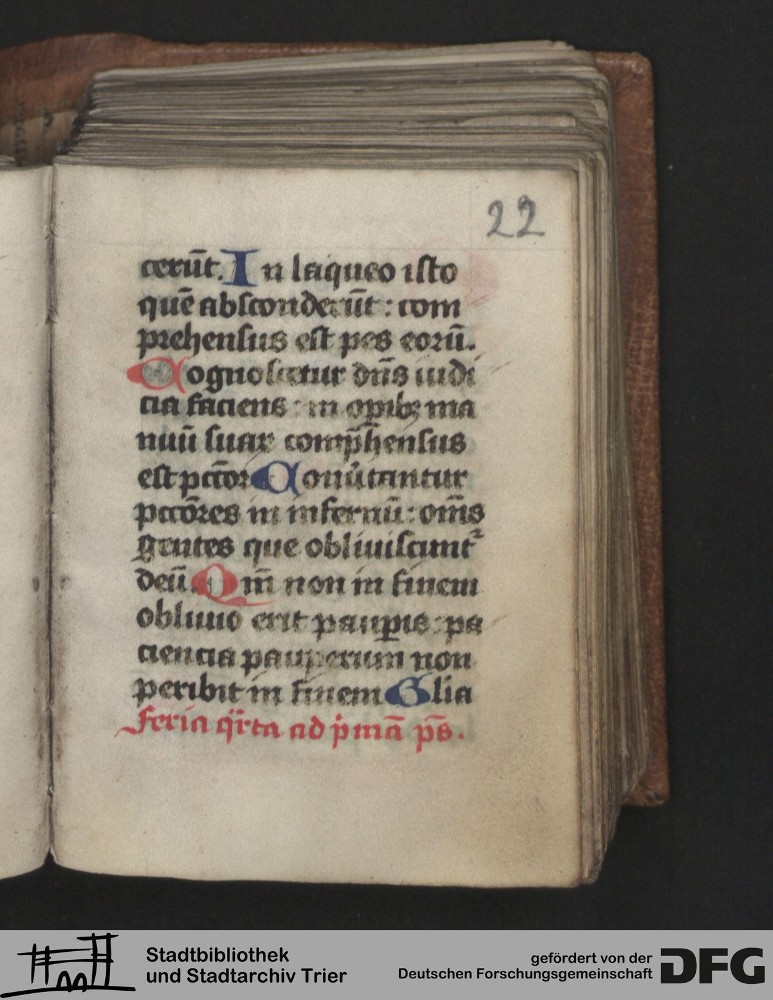 22
cerūt. In laqueo isto
quē absconderūt : com
prehensus est pes eorū.
Cognoscetur dn̄s iudi
cia faciens : in opībꝫ ma
nuū suaꝝ comp̄hensus
est pccōr Conūtantur
pccōres in infernū : om̄s
gentes que obliuiscunt᷑
deū. Qm̄ non in finem
obliuio erit pauꝑis : pa
ciencia pauperum non
peribit in finem Glia
Feria qr̄ta ad pͥmā ps̄.
Stadtbibliothek
und Stadtarchiv Trier
gefördert von der
Deutschen Forschungsgemeinschaft
DFG